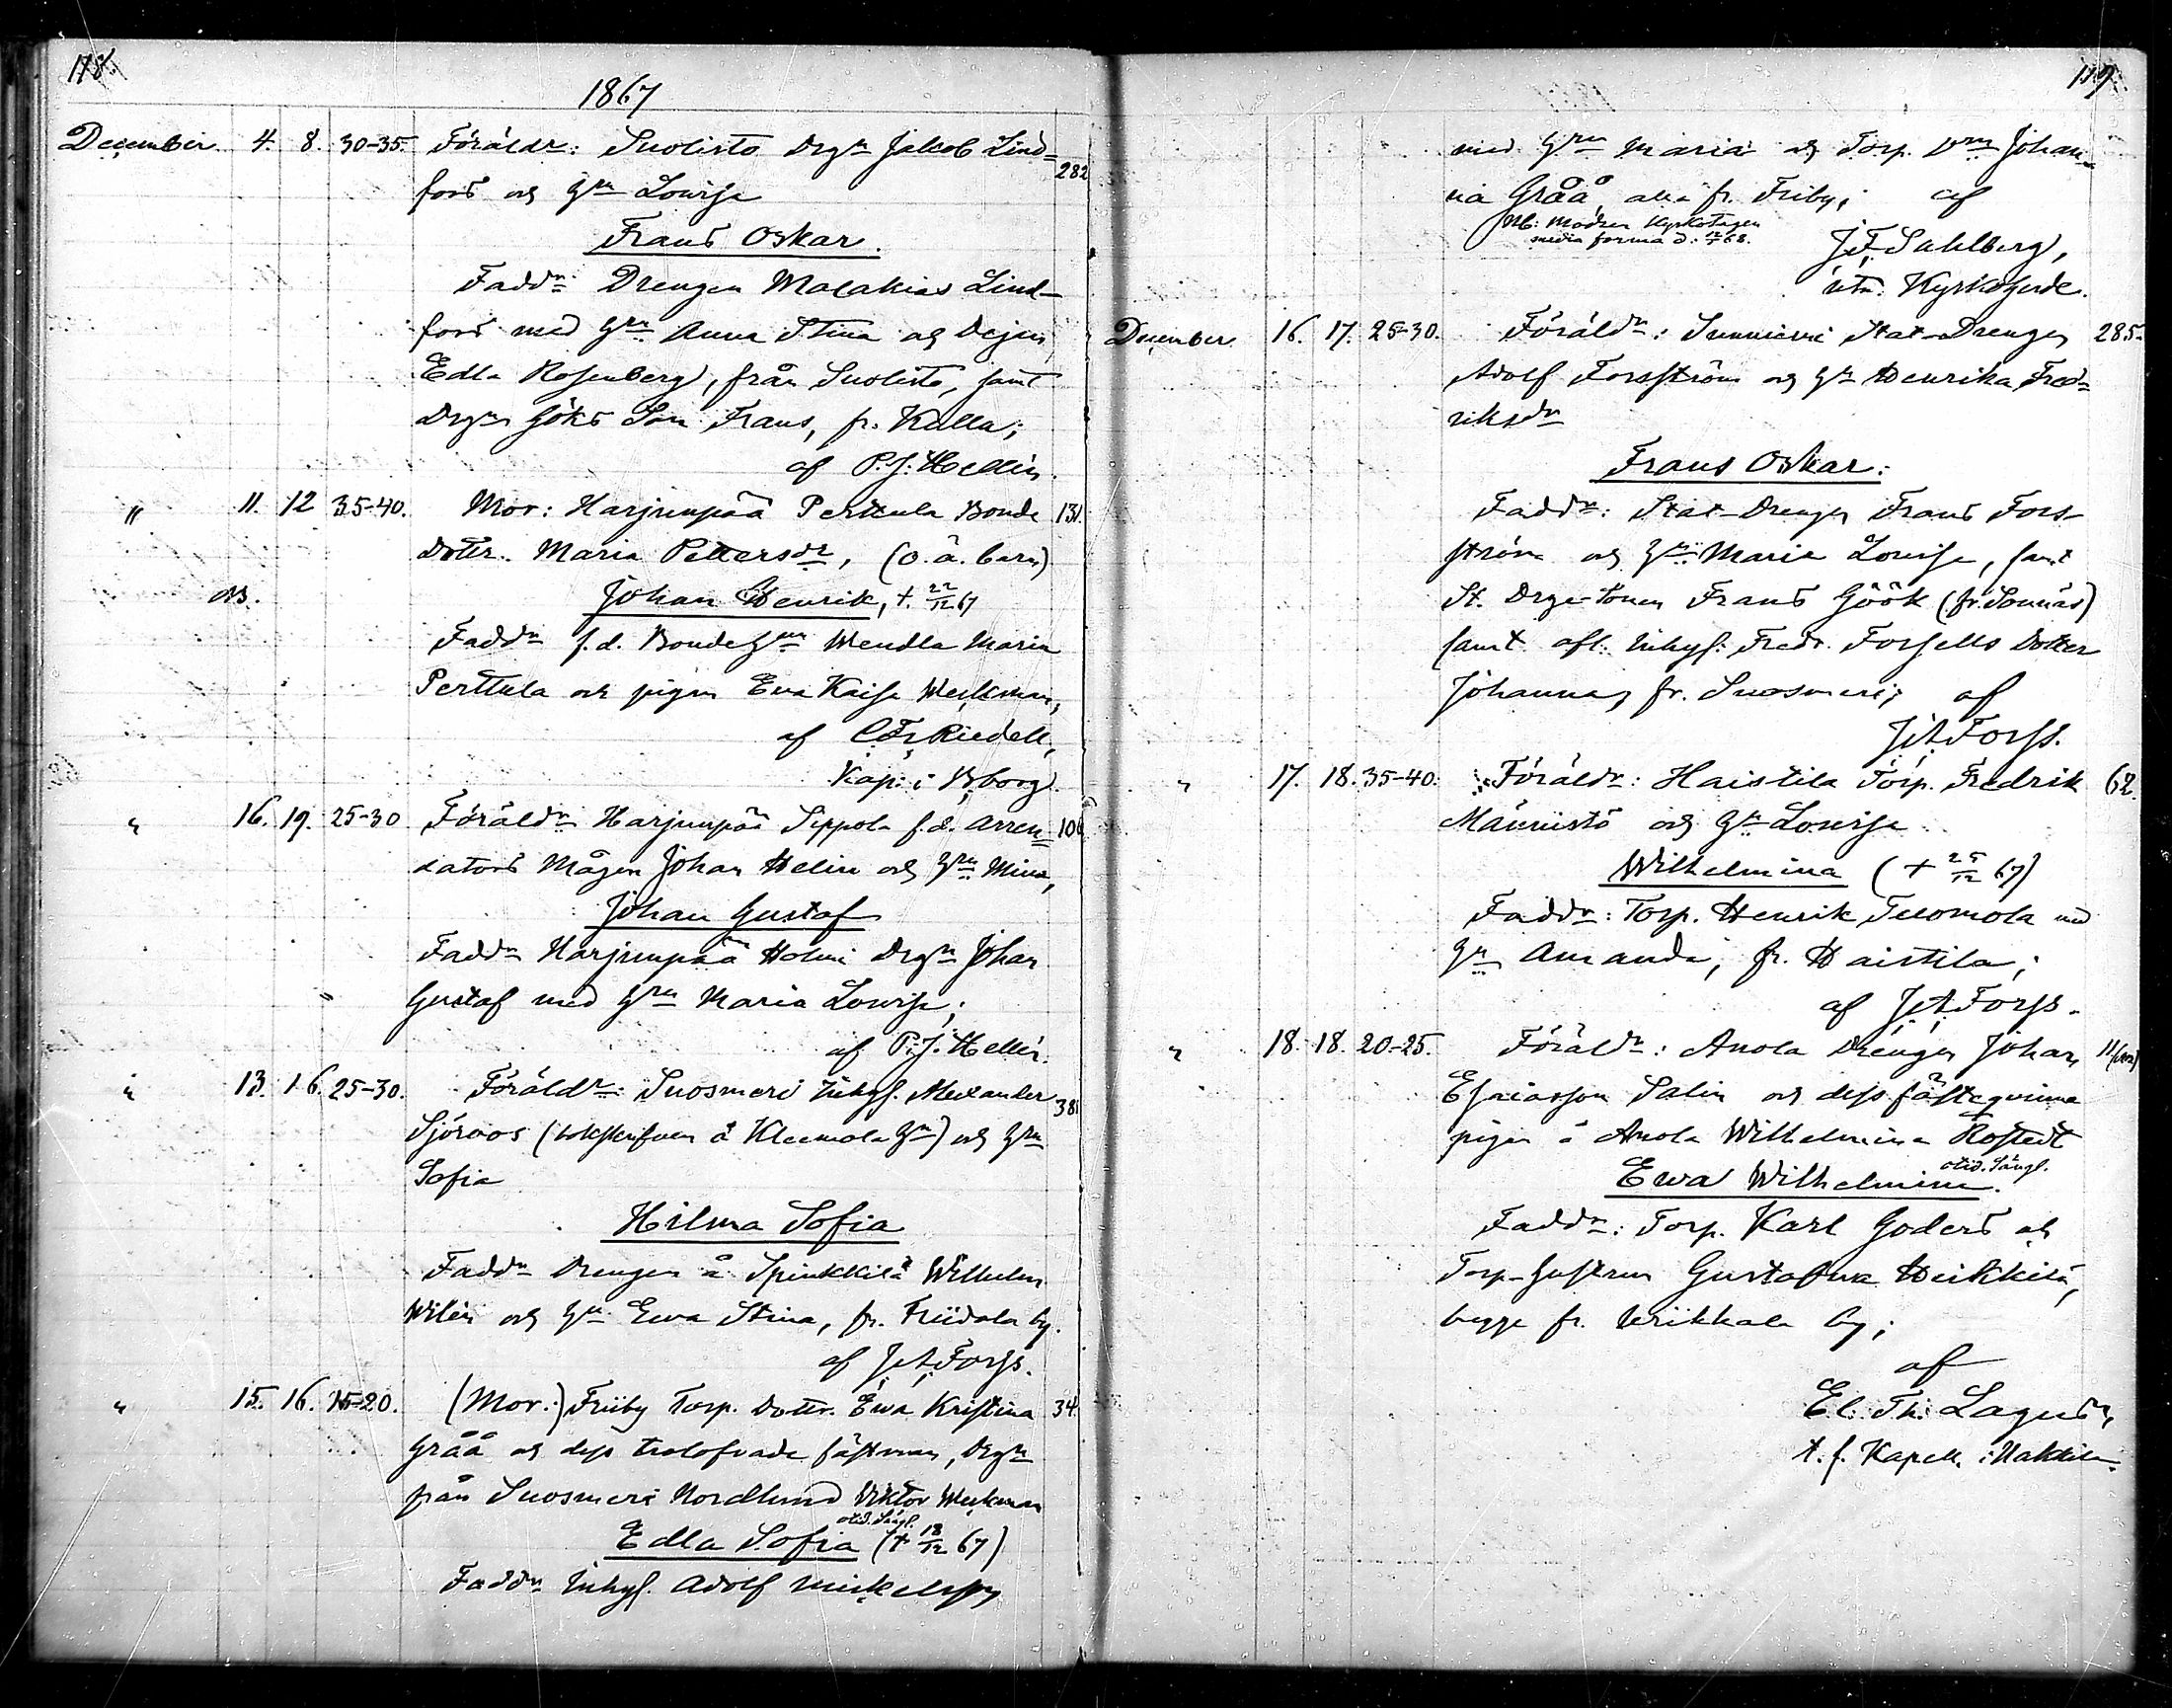 118.
1867
December. 4. 8. 30-35. Föräldr: Suolisto Drgn Jakob Lind=
282
fors och Hn Lovisa
Frans Oskar.
Faddr Drengen Malakias Lind-
fors med Hn Anna Stina och Dejan
Edla Rosenberg, från Suolisto, samt
Drgn Göks Son Frans, fr. Kulla;
af P.J. Hellén.
" 11. 12 35-40. Mor: Harjunpää Perttula Bonde 131.
Dottr. Maria Pettersdr, (o.ä. barn)
Johan Henrik, +. 22/12 67
Faddr f.d. Bonde Hn Wendla Maria
Perttula och pigan Eva Kaisa Werkman,
af C.Fr. Riedell,
Kap. i B.borg.
" 16. 19. 25-30 Föräldr Harjunpää Seppola f.d. Arren=
dators Mågen Johan Helin och Hn Mina,
Johan Gustaf
Faddr Harjunpää Holmi Drgn Johan
Gustaf med Hn Maria Lovisa;
af P.J. Hellén.
" 13. 16. 25-30. Föräldr: Suosmeri Inhys. Alexander 38.
Sjöroos (bokskrifven å Kleemola Hn) och Hn
Sofia
Hilma Sofia
Faddr Drengen å Spinkkilä Wilhelm
Wilén och Hn Ewa Stina, fr. Friidala by.
af J.A. Forss.
" 15. 16. 15-20. (Mor:) Friiby Torp. Dottr. Ewa Kristina 34.
Gråå och dess trolofvade fästman, Drgn
från Suosmeri Nordlund Viktor Werkman
otid. Sängl.
Edla Sofia (+ 18/12 67)
Faddr Inhys. Adolf Mickelsson
119.
med Hn Maria och Torp. Drn Johan=
na Gråå, alla fr. Friby; af
NB: Modren Kyrkotagen
media forma d: 12/1 68.
J.F. Sahlberg,
utn. Kyrkoherde.
December. 16. 17. 25-30. Föräldr: Sunniemi Stat-Drengen 285.
Adolf Forsström och Hn Henrika Fred=
riksdr
Frans Oskar.
Faddr: Stat-Drengen Frans Fors-
ström och Hn Maria Lovisa, samt
St. Drge-Sonen Frans Göök (fr. Sonnäs)
samt afl. Inhys. Fredr. Forsells Dotter
Johanna, fr. Suosmeri; af
J.A. Forss.
" 17. 18. 35-40. Föräldr: Haistila Torp. Fredrik 62.
Männistö och Hn Lovisa
Wilhelmina (+ 25/12 67)
Faddr: Torp. Henrik Tuomola med
Hn Amanda, fr. Haistila;
af J.A. Forss.
" 18. 18. 20-25. Föräldr: Anola Drengen Johan
Esaiasson Salin och dess fästeqvinna
pigan å Anola Wilhelmina Rostedt
otid. Sängl.
Ewa Wilhelmina.
Faddr: Torp. Karl Goders och
Torp-hustrun Gustafva Heikkilä,
bägge fr. Wiikkala by;
af
El. Th. Lagus,
t.f. Kapell. i Nakkila.